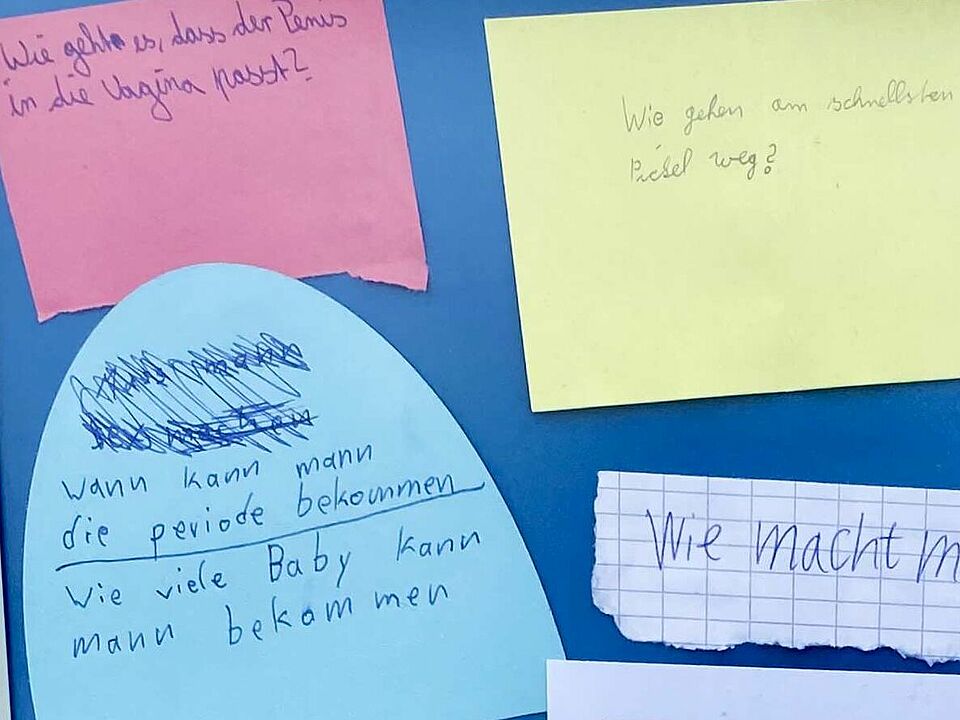 Wie geht es, dass der Penis
in die Vagina passt?
Wie gehen am schnellsten
Pickel weg?
wann kann mann
die periode bekommen
Wie viele Baby kann
mann bekommen
Wie macht m